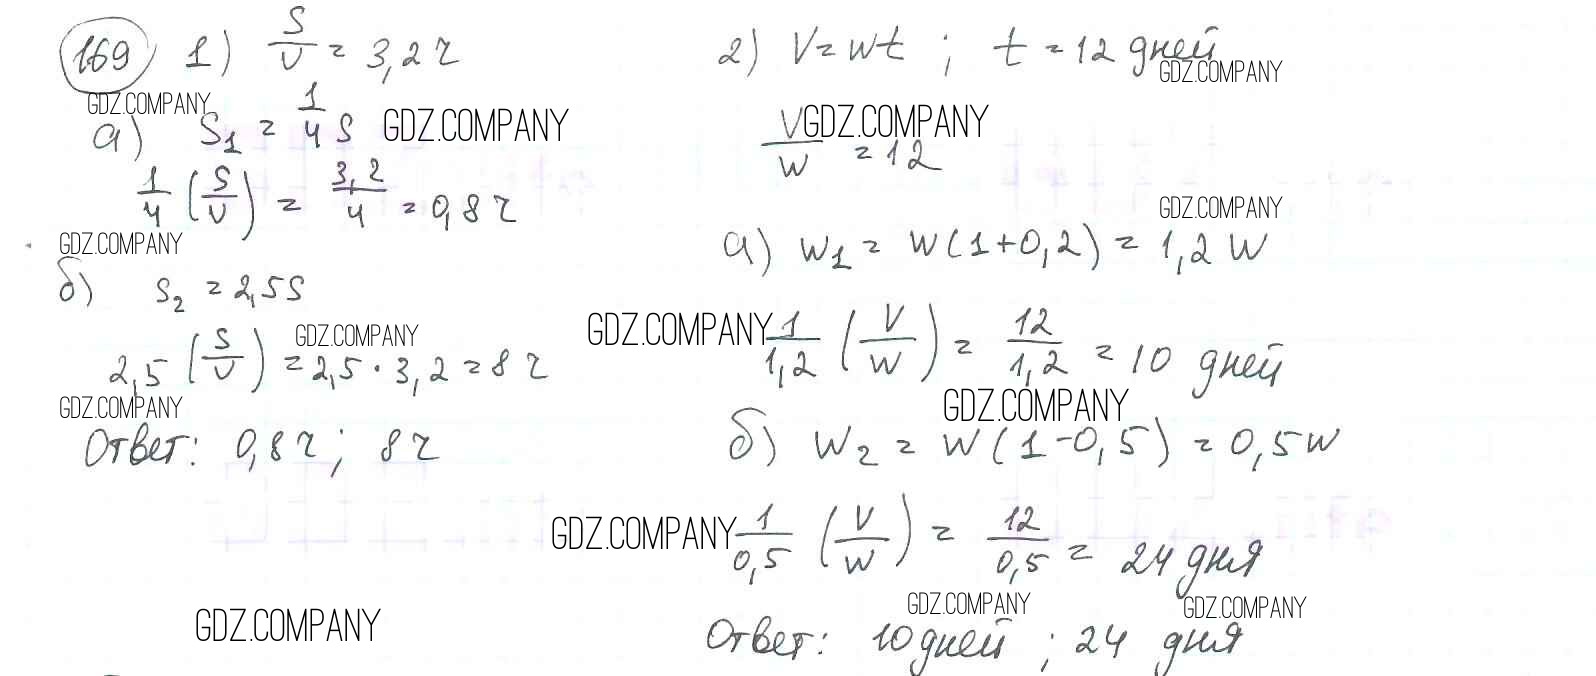 169 1) S/V = 3,2 ч
GDZ.COMPANY
а) S₁ = 1/4 S GDZ.COMPANY
1/4 (S/V) = 3,2/4 = 0,8 ч
GDZ.COMPANY
б) S₂ = 2,5S
GDZ.COMPANY
2,5 (S/V) = 2,5 · 3,2 = 8 ч
GDZ.COMPANY
Ответ: 0,8 ч; 8 ч
GDZ.COMPANY
2) V = wt ; t = 12 дней
GDZ.COMPANY
GDZ.COMPANY
V/w = 12
GDZ.COMPANY
а) w₁ = w(1+0,2) = 1,2 w
GDZ.COMPANY
1/1,2 (V/w) = 12/1,2 = 10 дней
GDZ.COMPANY
б) w₂ = w(1-0,5) = 0,5w
GDZ.COMPANY
1/0,5 (V/w) = 12/0,5 = 24 дня
GDZ.COMPANY GDZ.COMPANY
Ответ: 10 дней ; 24 дня